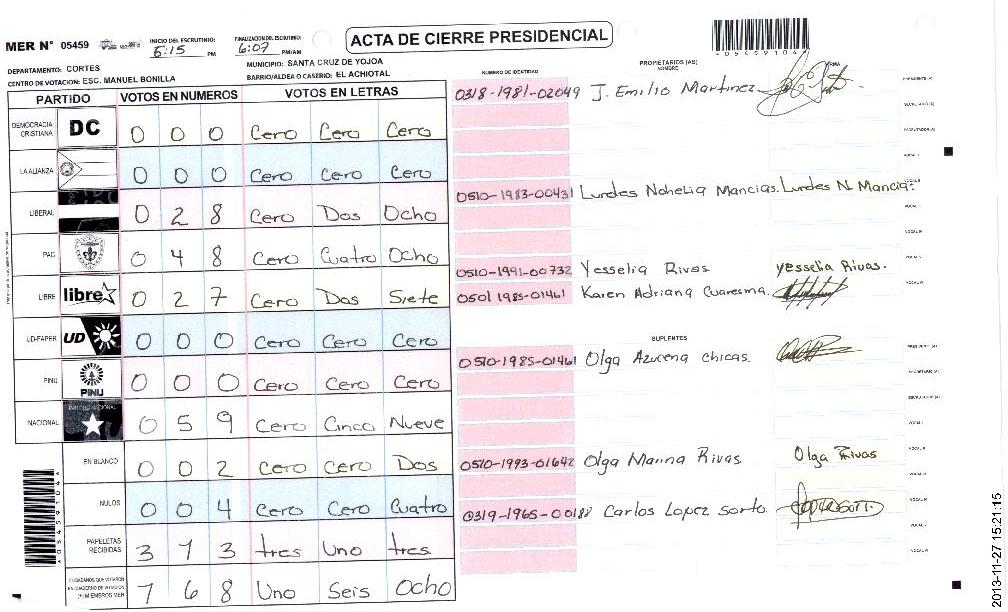 MER N° 05459
INICIO DEL ESCRUTINIO: 5:15 PM
FINALIZACION DEL ESCRUTINIO: 6:07 PM/AM
ACTA DE CIERRE PRESIDENCIAL
DEPARTAMENTO: CORTES
MUNICIPIO: SANTA CRUZ DE YOJOA
CENTRO DE VOTACION: ESC. MANUEL BONILLA
BARRIO/ALDEA O CASERIO: EL ACHIOTAL
PARTIDO VOTOS EN NUMEROS VOTOS EN LETRAS
DEMOCRACIA CRISTIANA DC 0 0 0 Cero Cero Cero
LA ALIANZA 0 0 0 Cero Cero Cero
LIBERAL 0 2 8 Cero Dos Ocho
PAC 0 4 8 Cero Cuatro Ocho
LIBRE libre 0 2 7 Cero Dos Siete
UD-FAPER UD 0 0 0 Cero Cero Cero
PINU PINU 0 0 0 Cero Cero Cero
NACIONAL 0 5 9 Cero Cinco Nueve
EN BLANCO 0 0 2 Cero Cero Dos
NULOS 0 0 4 Cero Cero Cuatro
PAPELETAS RECIBIDAS 3 1 3 tres Uno tres
CIUDADANOS QUE VOTARON
EN CUADERNO DE VOTACION
(+) MIEMBROS MER 1 6 8 Uno Seis Ocho
NUMERO DE IDENTIDAD
PROPIETARIOS (AS)
NOMBRE
FIRMA
0318-1981-02049 J. Emilio Martinez
PRESIDENTE (A)
SECRETARIO (A)
ESCRUTADOR (A)
VOCAL I
0510-1983-00431 Lurdes Nohelia Mancias. Lurdes N. Mancias
VOCAL II
VOCAL III
VOCAL IV
0510-1991-00732 Yesselia Rivas yesselia Rivas.
VOCAL V
0501 1985-01461 Karen Adriana Cuaresma.
VOCAL VI
SUPLENTES
0510-1985-01461 Olga Azucena chicas.
PRESIDENTE (A)
SECRETARIO (A)
ESCRUTADOR (A)
VOCAL I
0510-1993-01642 Olga Marina Rivas Olga Rivas
VOCAL II
VOCAL III
0319-1965-00188 Carlos Lopez sorto.
VOCAL IV
VOCAL V
VOCAL VI
2013-11-27 15:21:15